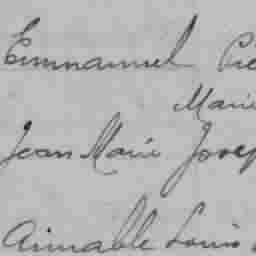 Emmanuel Pie
Marie
Jean Marie Josep
Aimable Louis